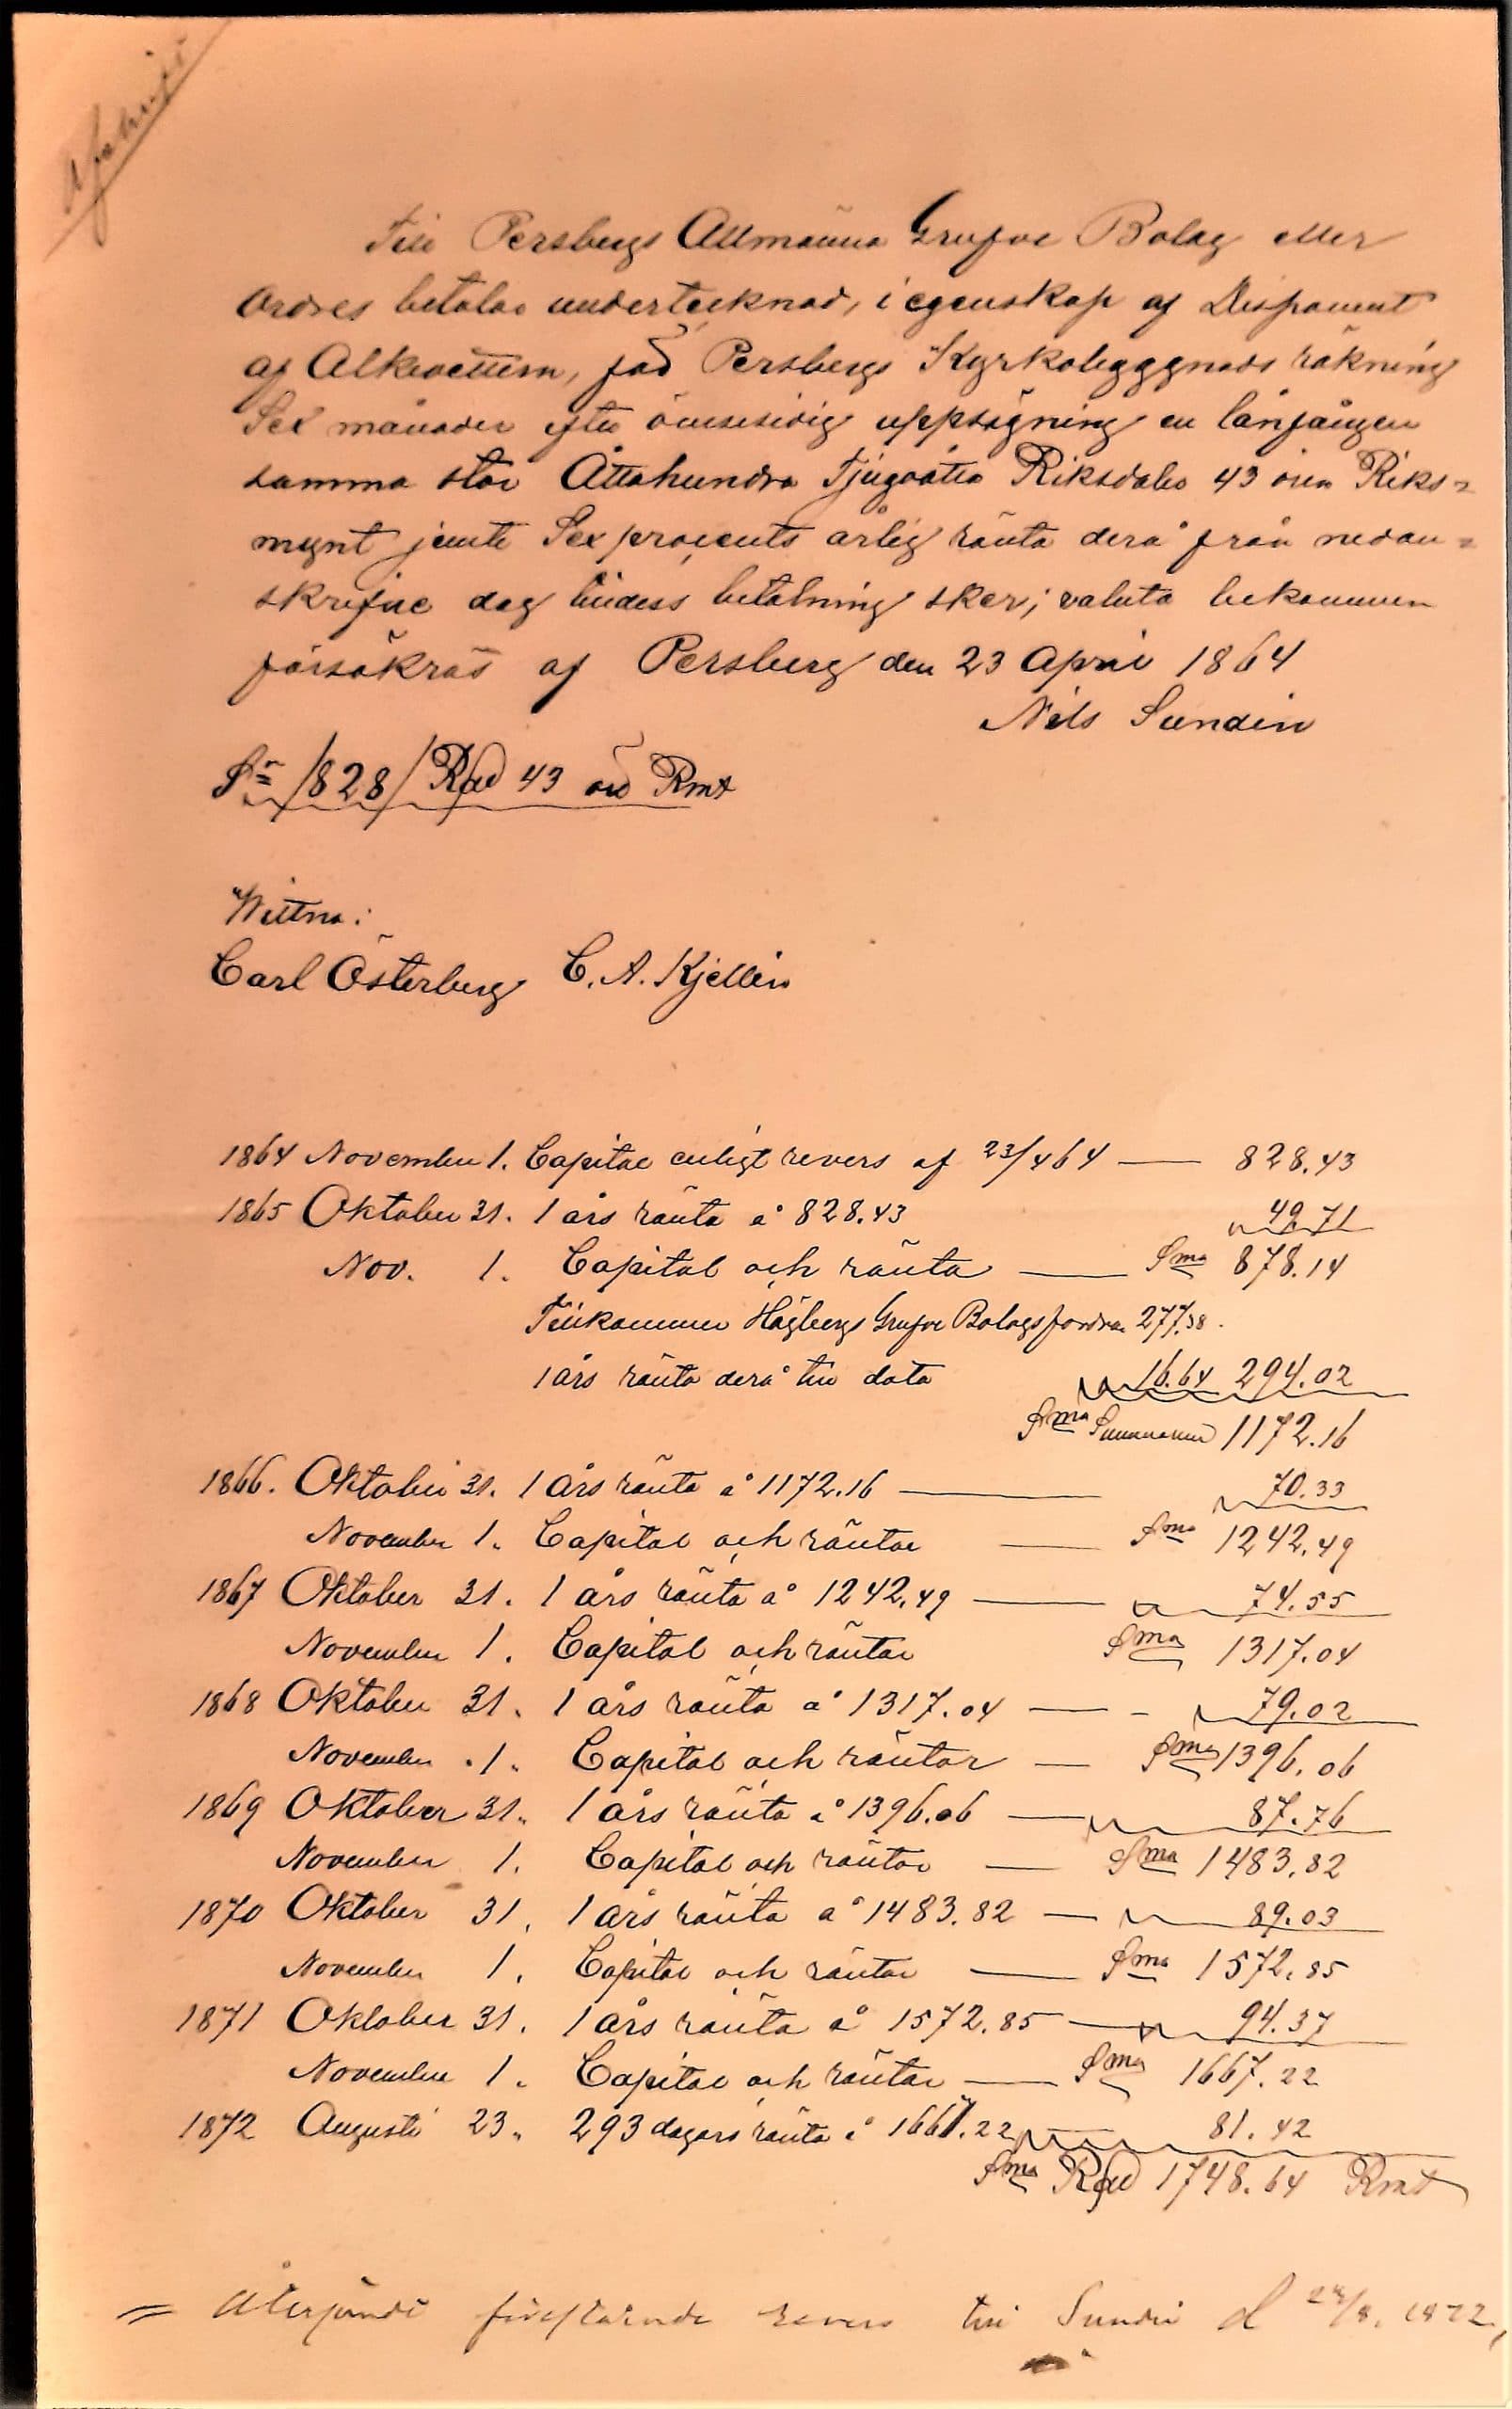 Afskrift
Till Persbergs Allmänna Grufve Bolag eller
Ordres betalar undertecknad, i egenskap af Disponent
af Alkvettern, för Persbergs Kyrkobyggnads räkning
Sex månader efter ömsesidig uppsägning en lånfången
summa stor Åttahundra Tjugoåtta Riksdaler 43 öre Riks=
mynt jemte Sex procents årlig ränta derå från nedan=
skrifne dag tildess betalning sker; valuta bekommen
försäkras af Persberg den 23 April 1864
Nils Sundin
Sr /828/ Rd 43 öre Rmt
Wittna:
Carl Österberg C. A. Kjellin
1864 November 1. Capital enligt revers af 23/4 64 — 828.43
1865 Oktober 31. 1 års ränta å 828.43 49.71
Nov. 1. Capital och ränta — Sma 878.14
Tillkommer Högbergs Grufve Bolags fordran 277.38.
1 års ränta derå till dato 16.64 294.02
Sma Summarum 1172.16
1866. Oktober 31. 1 års ränta å 1172.16 — 70.33
November 1. Capital och räntor — Sma 1242.49
1867 Oktober 31. 1 års ränta å 1242.49 — 74.55
November 1. Capital och räntor Sma 1317.04
1868 Oktober 31. 1 års ränta å 1317.04 — - 79.02
November 1. Capital och räntor — Sma 1396.06
1869 Oktober 31. 1 års ränta å 1396.06 — 87.76
November 1. Capital och räntor — Sma 1483.82
1870 Oktober 31. 1 års ränta å 1483.82 — 89.03
November 1. Capital och räntor — Sma 1572.85
1871 Oktober 31. 1 års ränta å 1572.85 — 94.37
November 1. Capital och räntor — Sma 1667.22
1872 Augusti 23. 293 dagars ränta å 1667.22 81.42
Sma Rd 1748.64 Rmt
= Återsändt förestående revers till Sundin d /8. 1872,